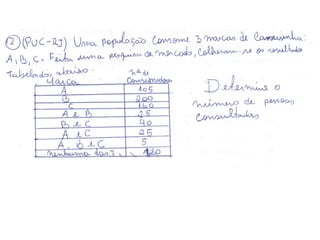 ② (PUC-RJ) Uma população consome 3 marcas de
A, B, C. Feita uma pesquisa de mercado, colheram-se os resultados
tabelados abaixo.
Marca nº de Consumidores
A 105
B 200
C 160
A e B 25
B e C 40
A e C 25
A, B e C 5
nenhuma das 3 120
Determine o
número de pessoas
consultadas